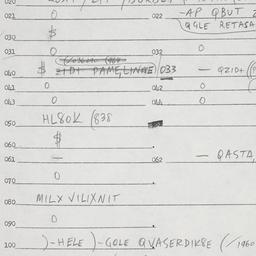 020
021 0 022 -AP QBUT
QGLE RETASA
030 $
031 0 032 0
040 $ ZIDI PAMELINGE 033 - QZID+
041 0 042 0
043 0 044 0
050 HL8OK (838
060 $
061 — 062 — QASTA,
070 0
080 MILX VILIXNIT
090 0
100 )-HELE )-GOLE QVASERDIK8E (/1960